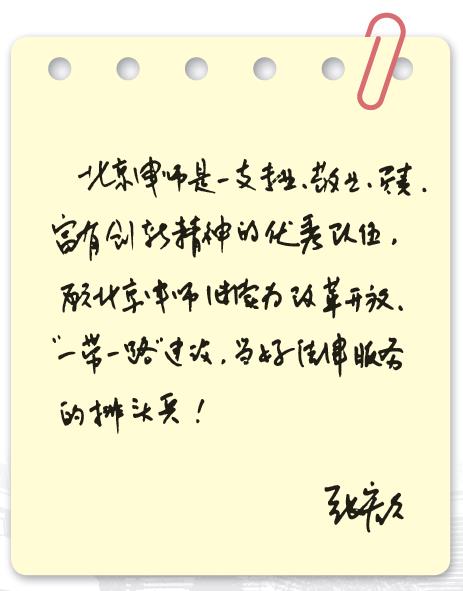 北京律师是一支专业、敬业、尽责、
富有创新精神的优秀队伍，
愿北京律师继续为改革开放、
“一带一路”建设，当好法律服务
的排头兵！
张庆